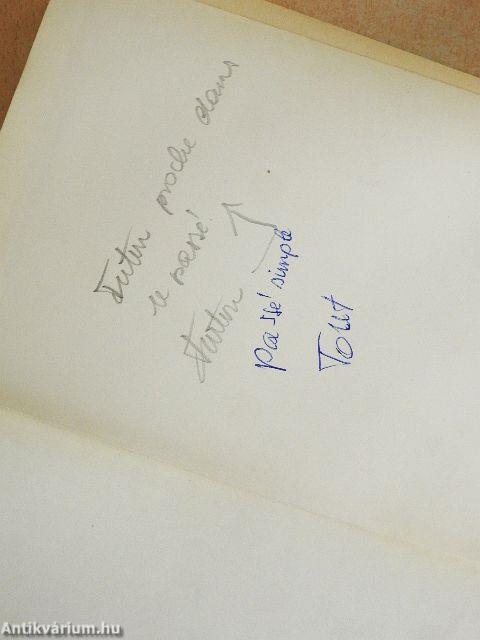 Futur proche dans
le passé!
Futur
Passé simple
Tout
Antikvárium.hu